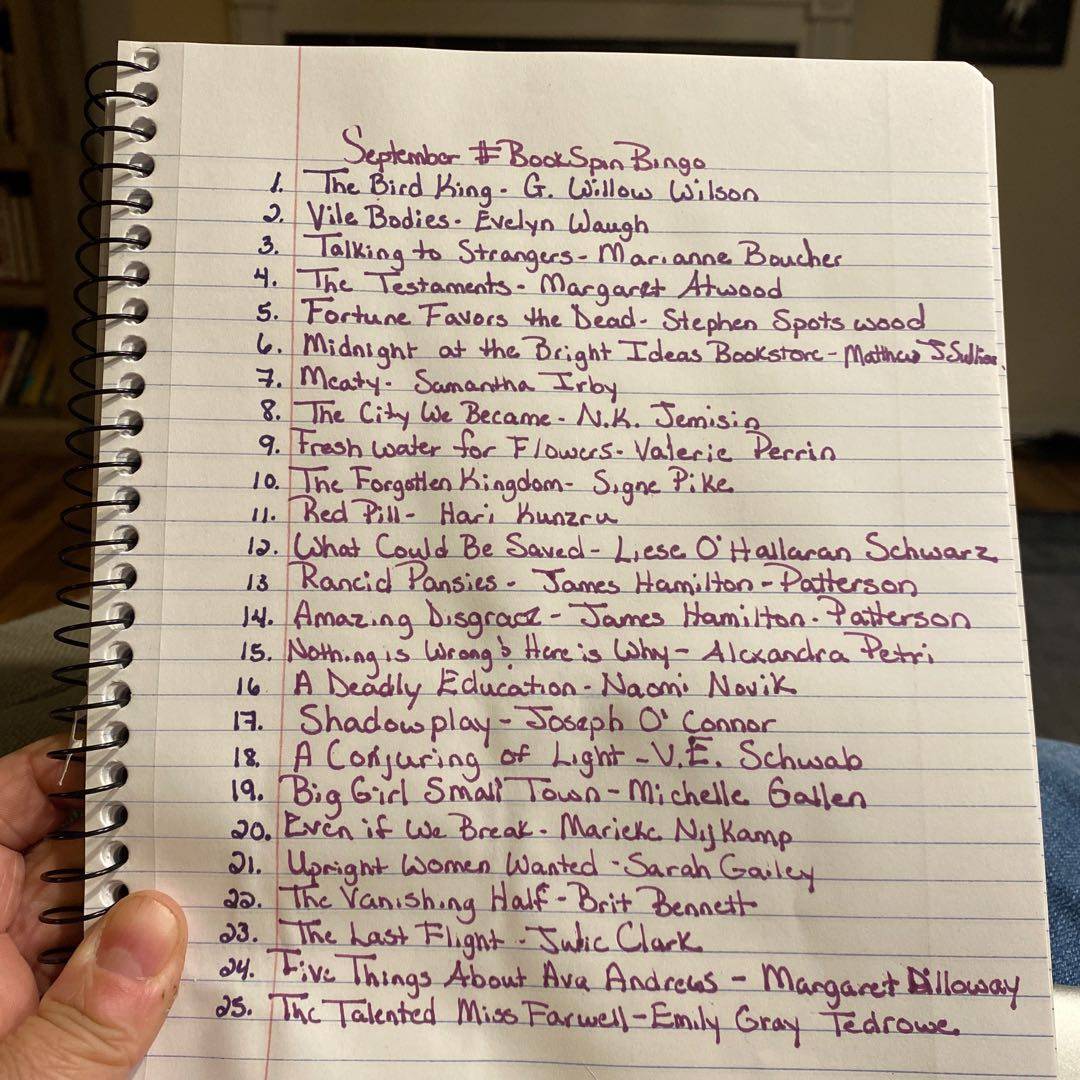 September #BookSpinBingo
1. The Bird King - G. Willow Wilson
2. Vile Bodies - Evelyn Waugh
3. Talking to Strangers - Marianne Boucher
4. The Testaments - Margaret Atwood
5. Fortune Favors the Dead - Stephen Spotswood
6. Midnight at the Bright Ideas Bookstore - Matthew J Sullivan
7. Meaty - Samantha Irby
8. The City We Became - N.K. Jemisin
9. Fresh water for Flowers - Valerie Perrin
10. The Forgotten Kingdom - Signe Pike
11. Red Pill - Hari Kunzru
12. What Could Be Saved - Liese O'Hallaran Schwarz
13 Rancid Pansies - James Hamilton - Patterson
14. Amazing Disgrace - James Hamilton - Patterson
15. Nothing is Wrong & Here is Why - Alexandra Petri
16 A Deadly Education - Naomi Novik
17. Shadowplay - Joseph O'Connor
18. A Conjuring of Light - V.E. Schwab
19. Big Girl Small Town - Michelle Gallen
20. Even if We Break - Marieke Nijkamp
21. Upright Women Wanted - Sarah Gailey
22. The Vanishing Half - Brit Bennett
23. The Last Flight - Julie Clark
24. Five Things About Ava Andrews - Margaret Dilloway
25. The Talented Miss Farwell - Emily Gray Tedrowe